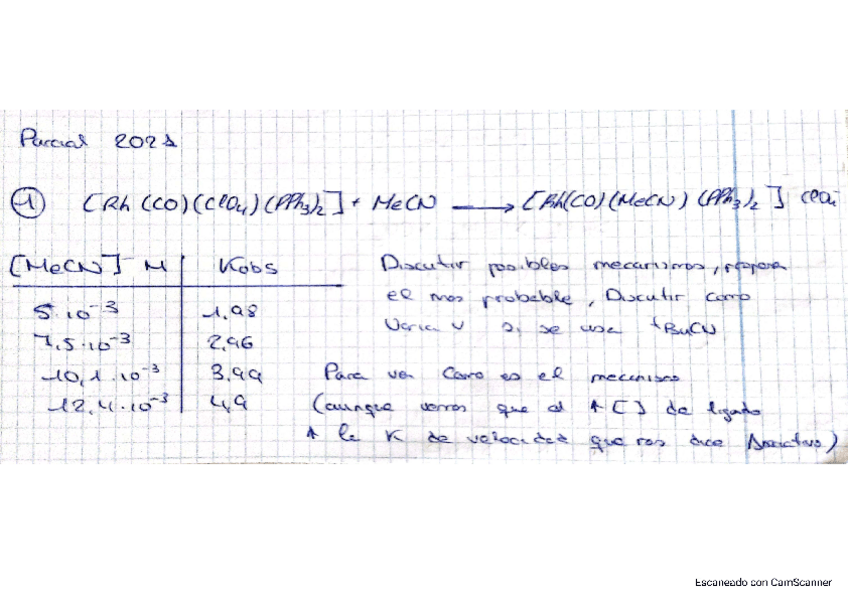 Parcial 2021
① [Rh(CO)(ClO4)(PPh3)2] + MeCN ⟶ [Rh(CO)(MeCN)(PPh3)2] ClO4
[MeCN] M | Kobs
5·10⁻³ | 1,98
7,5·10⁻³ | 2,96
10,1·10⁻³ | 3,99
12,4·10⁻³ | 4,9
Discutir posibles mecanismos, propona
el mas probable, Discutir como
varia v si se usa tBuCN
Para ver como es el mecanismo
(aunque vemos que al ↑ [] de ligado
↑ la K de velocidad que nos dice Asociativo)
Escaneado con CamScanner